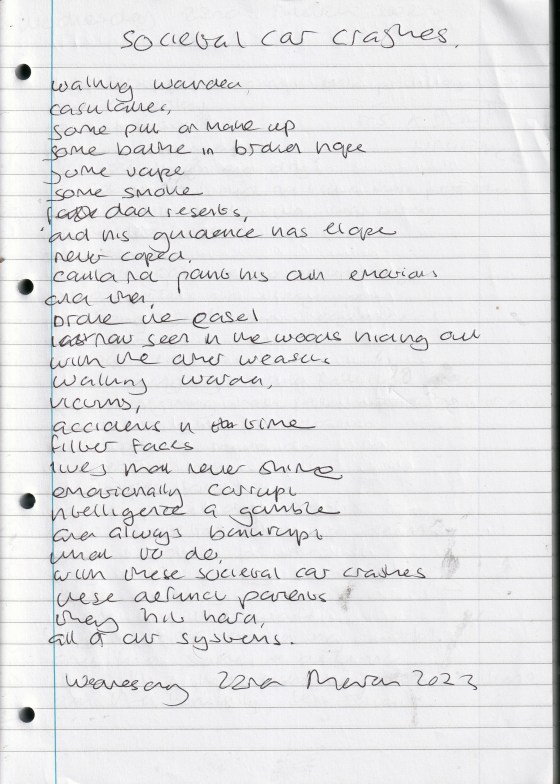 societal car crashes.
walking wounded,
casulaties,
some put on make up
some bathe in broken hope
some vape
some smoke
dad resents,
and his guidence has elope
never coped,
could not paint his own emotions
and then,
broke the easel
now seen in the woods hiding out
with the other weasels
walking wounded,
victims,
accidents in time
filter faces
lives that never shine
emotionally corrupt
intelligence a gamble
and always bankrupt
what to do,
with these societal car crashes
these defunct parents
they hit hard,
all of our systems.
Wednesday 22nd March 2023